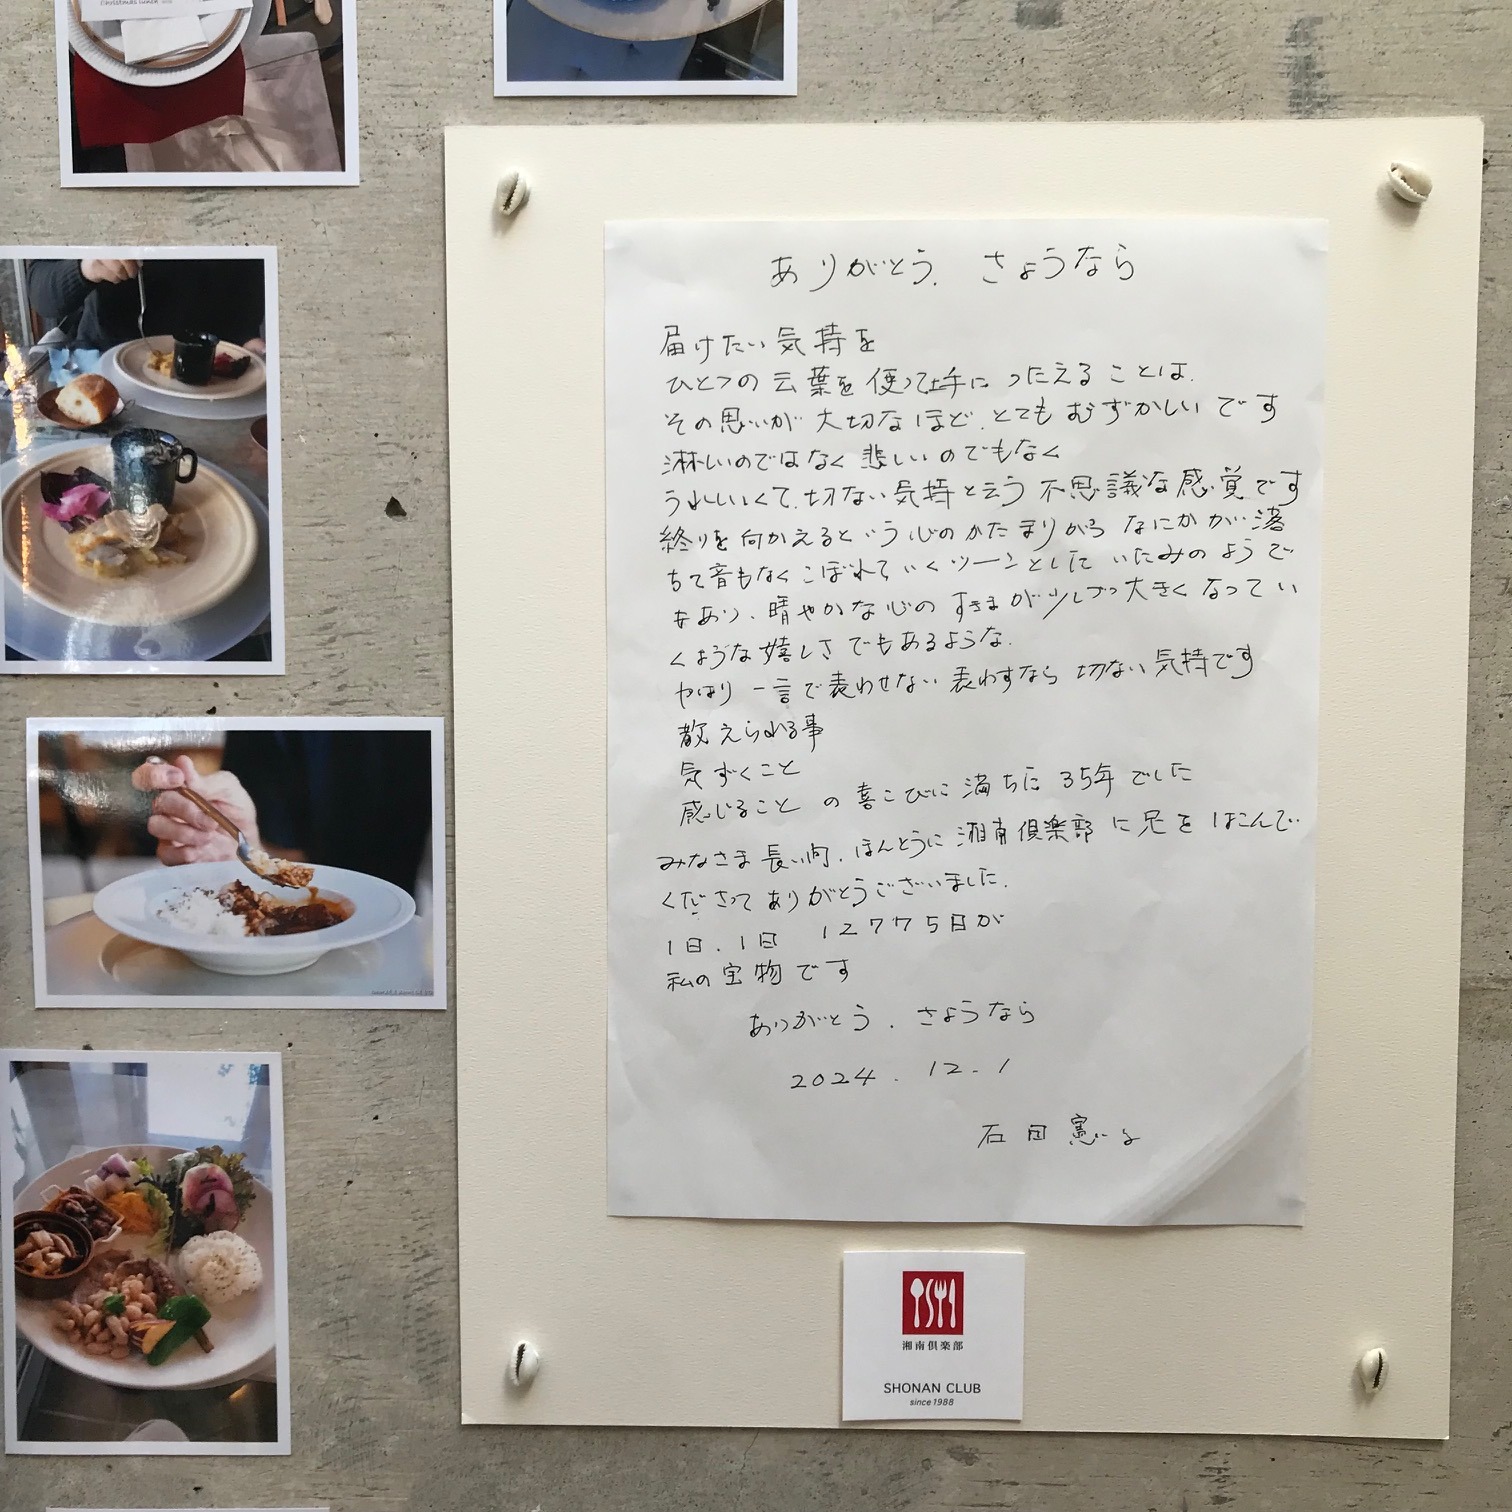 Christmas lunch
ありがとう. さようなら
届けたい気持を
ひとつの云葉を使って上手につたえることは.
その思いが大切なほど、とてもむずかしいです
淋しいのではなく悲しいのでもなく
うれしいくて、切ない気持と云う不思議な感覚です
終りを向かえるという心のかたまりから なにかが落
ちて音もなくこぼれていくツーンとしたいたみのようで
もあり、晴やかな心のすきまが少しづつ大きくなってい
くような嬉しさでもあるような.
やはり一言で表わせない 表わすなら 切ない気持です
教えられる事
気ずくこと
感じること の喜こびに満ちた35年でした
みなさま長い間、ほんとうに湘南倶楽部に足をはこんで
くださってありがとうございました.
1日、1日 12775日が
私の宝物です
ありがとう. さようなら
2024. 12. 1
石田
湘南倶楽部
SHONAN CLUB
since 1988